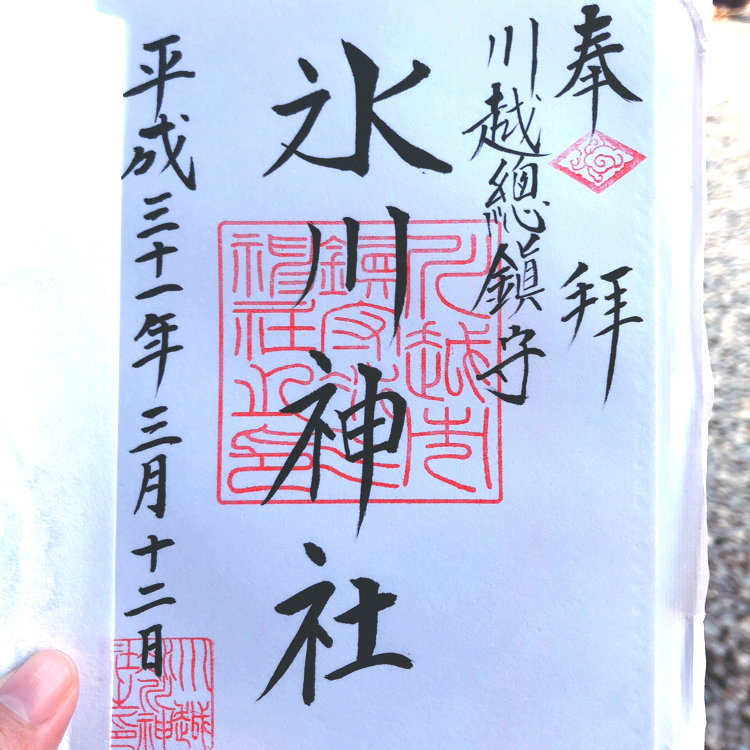 奉拝
川越總鎮守
氷川神社
平成三十一年三月十二日